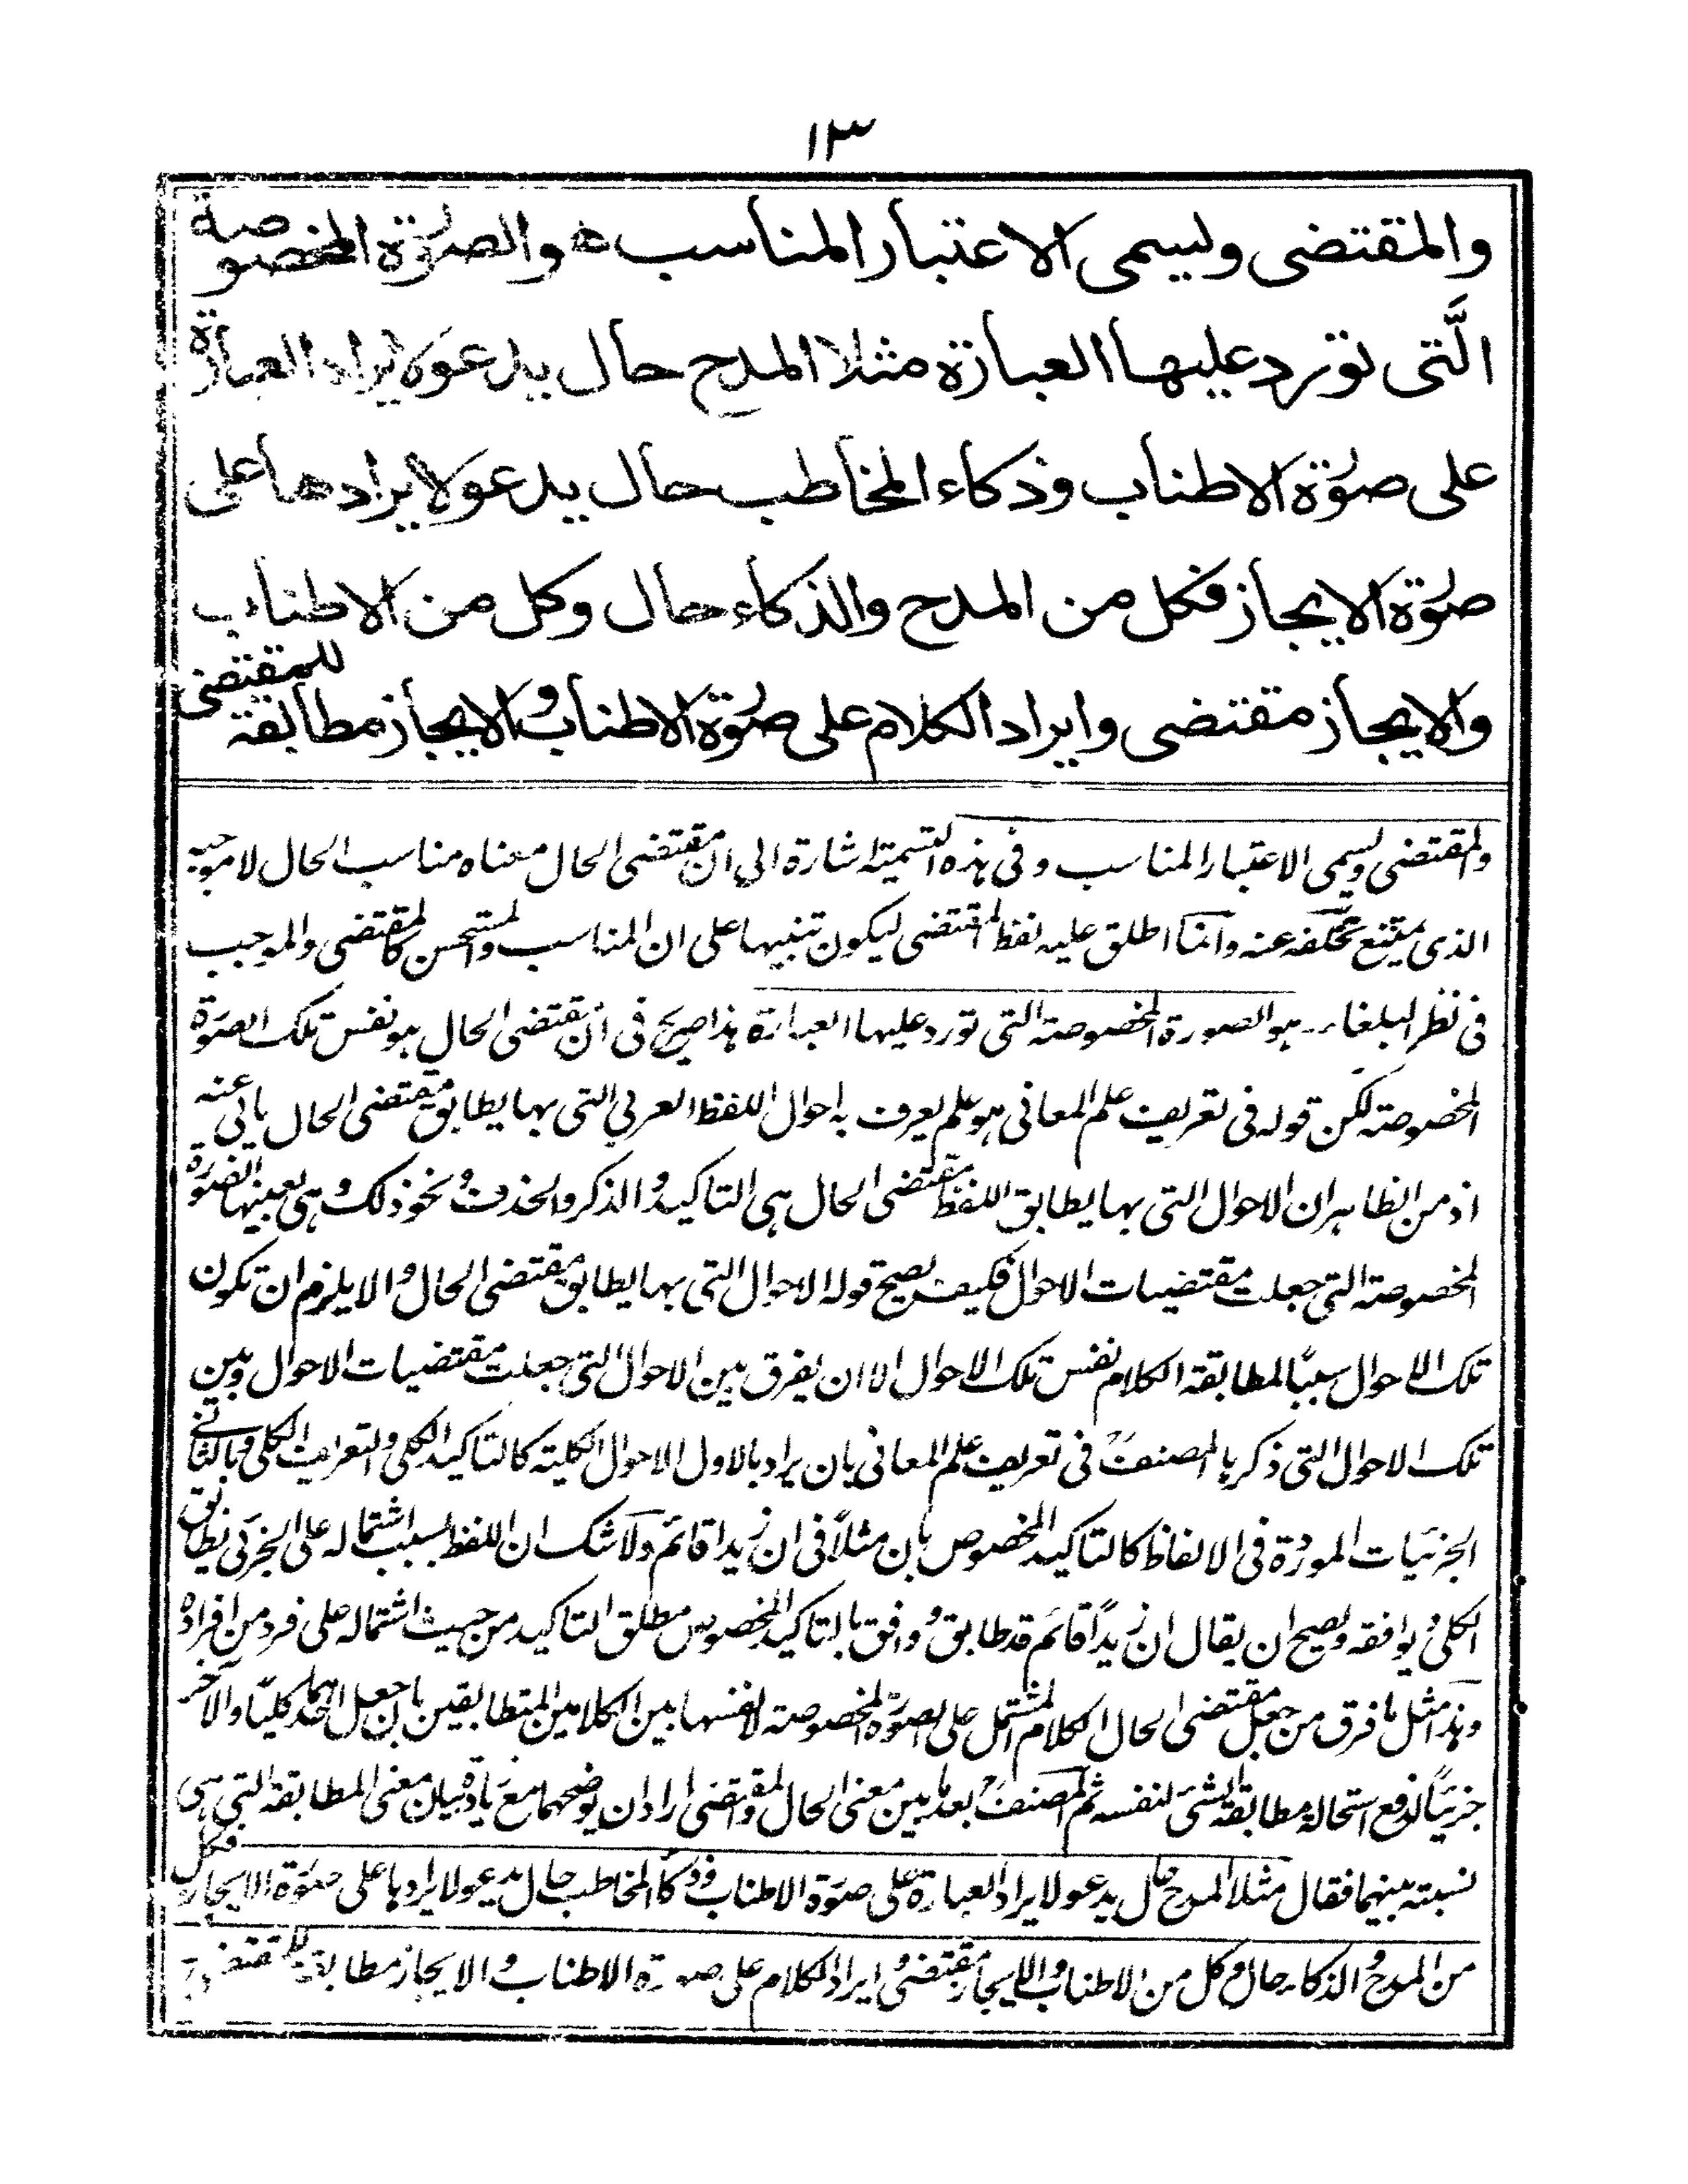 ١٣
والمقتضى ويسمى الاعتبار المناسب هو الصورة المخصوصة
الَّتى تورد عليها العبارة مثلا المدح حال يدعو لايراد العبارة
على صورة الاطناب وذكاء المخاطب حال يدعو لايرادها على
صورة الايجاز فكل من المدح والذكاء حال وكل من الاطناب
والايجاز مقتضى وايراد الكلام على صورة الاطناب والايجاز مطابقة للمقتضى
والمقتضى ويسمى الاعتبار المناسب وفى هذه التسمية اشارة الى ان مقتضى الحال معناه مناسب الحال لا موجبه
الذى يمتنع تخلفه عنه وانما اطلق عليه لفظ المقتضى ليكون تنبيها على ان المناسب والمستحسن كالمقتضى والموجب
فى نظر البلغاء هو الصورة المخصوصة التى تورد عليها العبارة هذا صريح فى ان مقتضى الحال هو نفس تلك الصورة
المخصوصة لكن قوله فى تعريف علم المعانى هو علم يعرف به احوال اللفظ العربي التى بها يطابق مقتضى الحال يابى عنه
اذ من الظاهر ان الاحوال التى بها يطابق اللفظ مقتضى الحال هى التاكيد والذكر والحذف ونحو ذلك وهى بعينها الصورة
المخصوصة التى جعلت مقتضيات الاحوال فكيف يصح قوله الاحوال التى بها يطابق مقتضى الحال والا يلزم ان تكون
تلك الاحوال سببًا لمطابقة الكلام نفس تلك الاحوال الا ان يفرق بين الاحوال التى جعلت مقتضيات الاحوال وبين
تلك الاحوال التى ذكرها المصنف فى تعريف علم المعانى بان يراد بالاول الاحوال الكلية كالتاكيد الكلى والتعريف الكلى وبالثانى
الجزئيات الموردة فى الالفاظ كالتاكيد المخصوص بان مثلاً فى ان زيدا قائم ولا شك ان اللفظ بسبب اشتماله على الجزئى يطابق
الكلى ويوافقه ويصح ان يقال ان زيدًا قائم قد طابق ووافق بالتاكيد المخصوص مطلق التاكيد من حيث اشتماله على فرد من افراده
وهذا مثل ما فرق من جعل مقتضى الحال الكلام المشتمل على الصورة المخصوصة لا نفسها بين الكلامين المتطابقين بان جعل احدهما كليًا والآخر
جزئيًا لدفع استحالة مطابقة الشئ لنفسه ثم المصنف بعد ما بين معنى الحال والمقتضى اراد ان يوضحهما مع زيادة بيان معنى المطابقة التى هى
نسبة بينهما فقال مثلا المدح حال يدعو لايراد العبارة على صورة الاطناب وذكاء المخاطب حال يدعو لايرادها على صورة الايجاز فكل
من المدح والذكاء حال وكل من الاطناب والايجاز مقتضى وايراد الكلام على صورة الاطناب والايجاز مطابقة للمقتضى